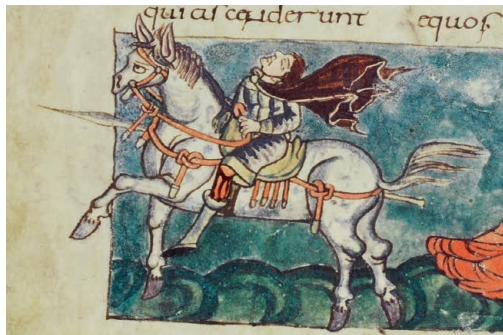 qui ascenderunt equos